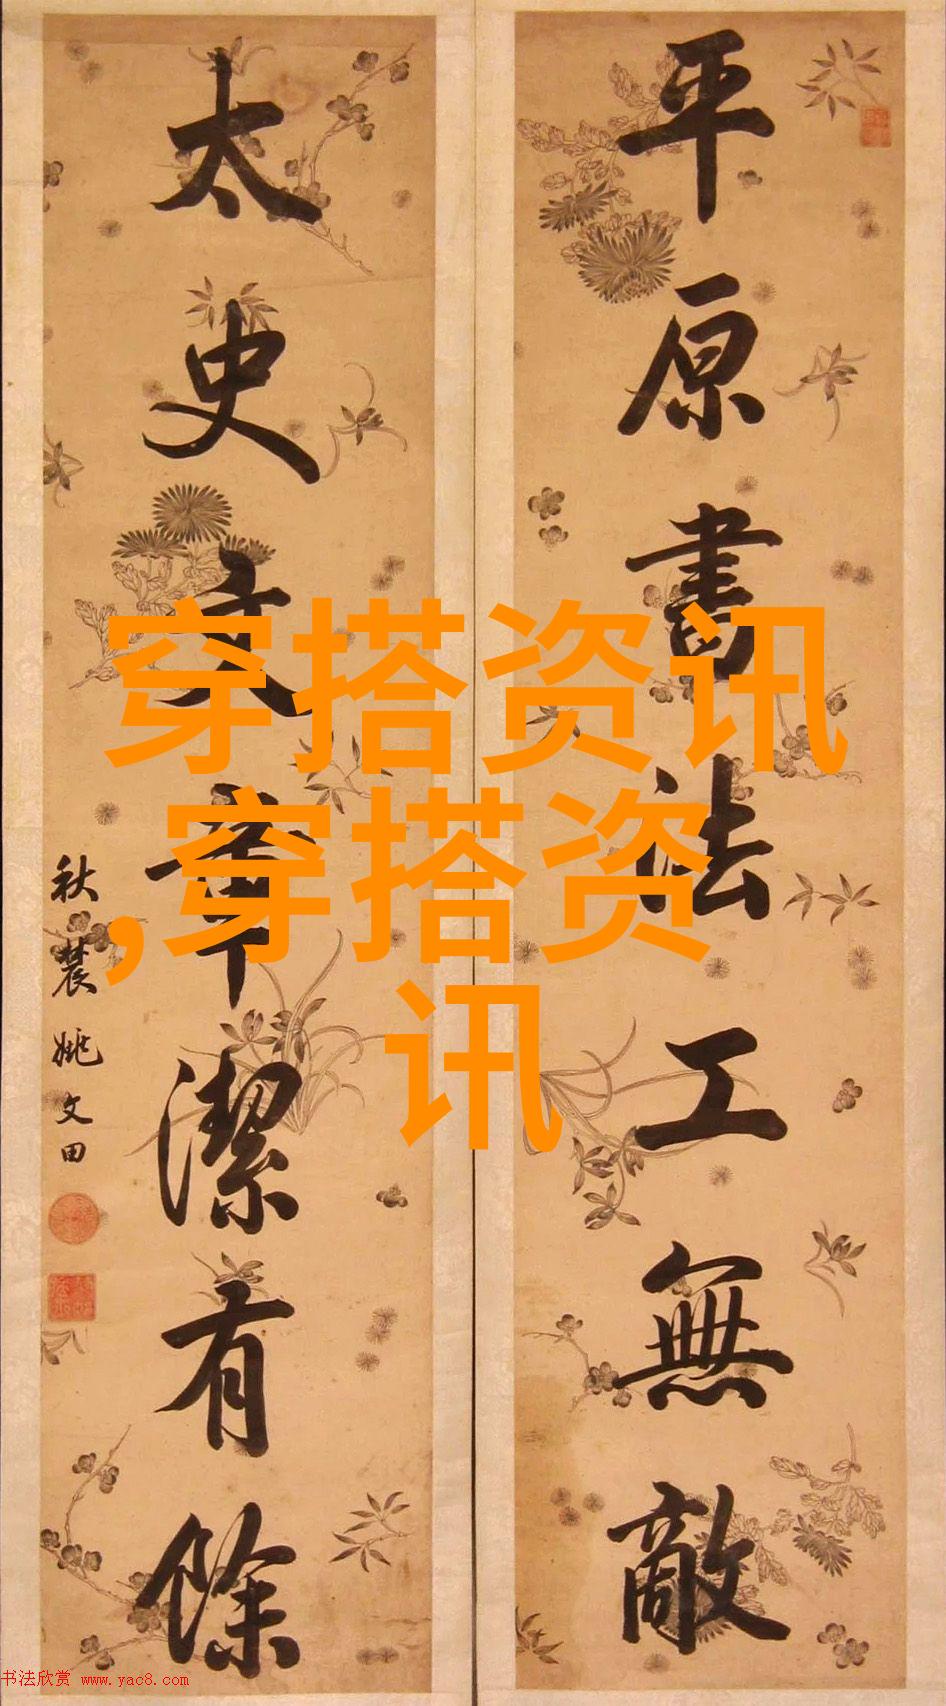 平原書法工無敵
太史文章潔有餘
秋農姚文田
穿搭资讯
,穿搭资
讯
书法欣赏 www.yac8.com